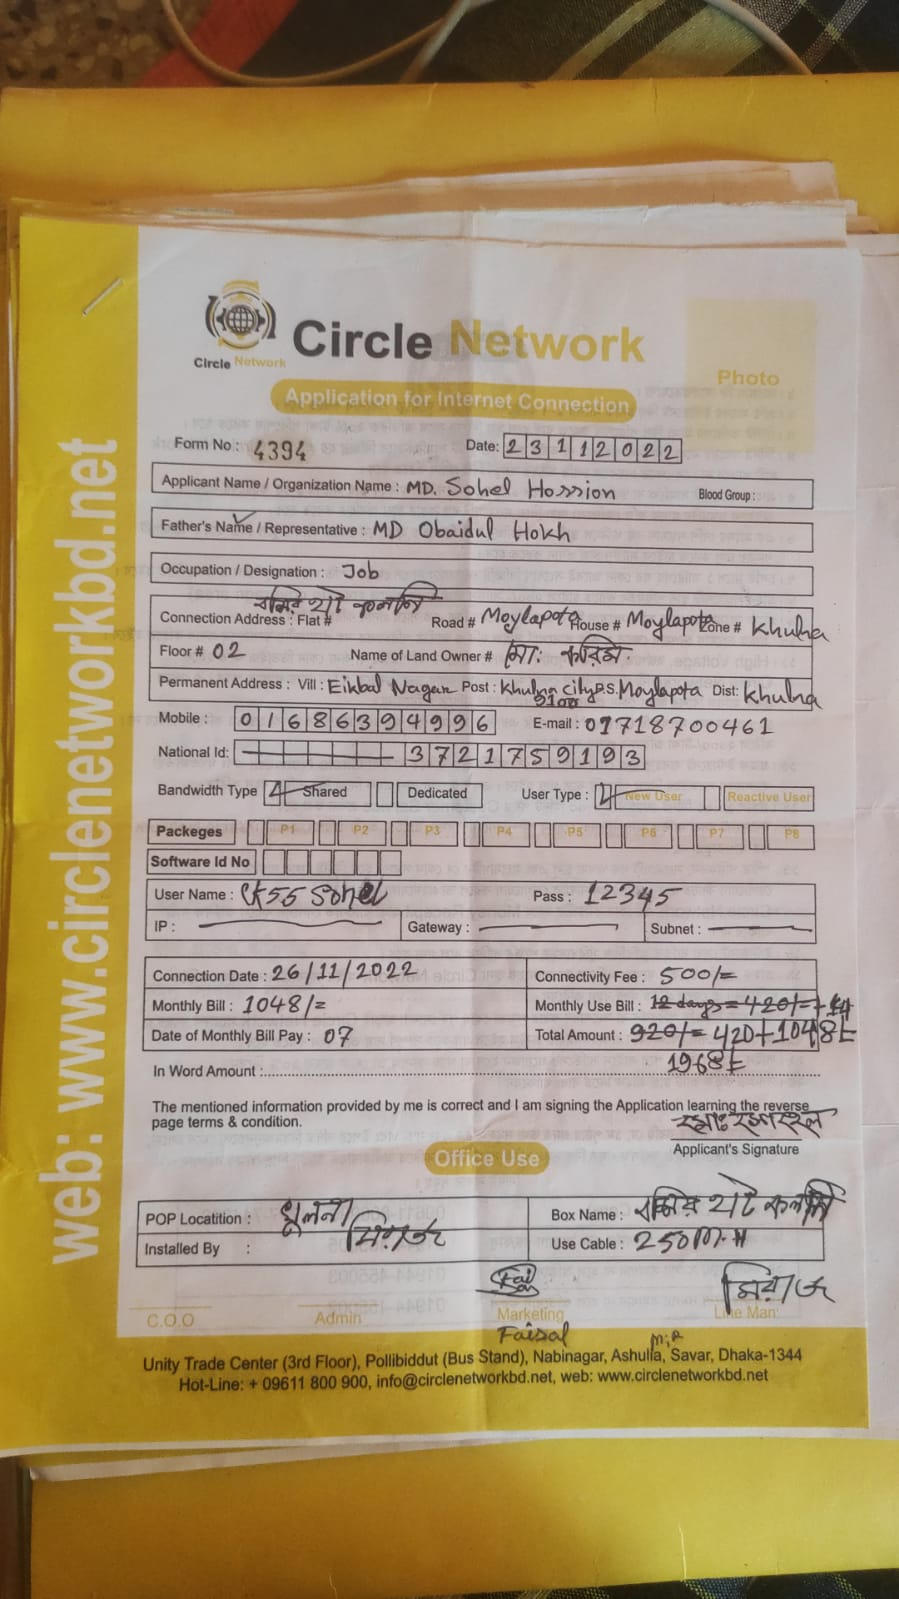 Circle Network
Circle Network
Photo
Application for Internet Connection
Form No : 4394 Date: 23112022
Applicant Name / Organization Name : MD. Sohel Hossion Blood Group :
Father's Name / Representative : MD Obaidul Hokh
Occupation / Designation : Job
Connection Address : Flat # Road # Moylapota House # Moylapota Zone # Khulna
Floor # 02 Name of Land Owner # মো: করিম
Permanent Address : Vill : Eikbal Nagar Post : Khulna City 9100 P.S. Moylapota Dist: Khulna
Mobile : 01686394996 E-mail : 01718700461
National Id: 3721759193
Bandwidth Type Shared Dedicated User Type : New User Reactive User
Packeges P1 P2 P3 P4 P5 P6 P7 P8
Software Id No
User Name : Sohel Pass : 12345
IP : Gateway : Subnet :
Connection Date : 26/11/2022 Connectivity Fee : 500/=
Monthly Bill : 1048/= Monthly Use Bill : 12 days = 420/=
Date of Monthly Bill Pay : 07 Total Amount : 920/= 420+1048
In Word Amount : 1968
The mentioned information provided by me is correct and I am signing the Application learning the reverse
page terms & condition.
Applicant's Signature
Office Use
POP Locatition : খুলনা Box Name :
Installed By : মিরাজ Use Cable : 250 M
মিরাজ
C.O.O Admin Marketing Line Man:
Faisal
Unity Trade Center (3rd Floor), Pollibiddut (Bus Stand), Nabinagar, Ashulia, Savar, Dhaka-1344
Hot-Line: + 09611 800 900, info@circlenetworkbd.net, web: www.circlenetworkbd.net
web: www.circlenetworkbd.net